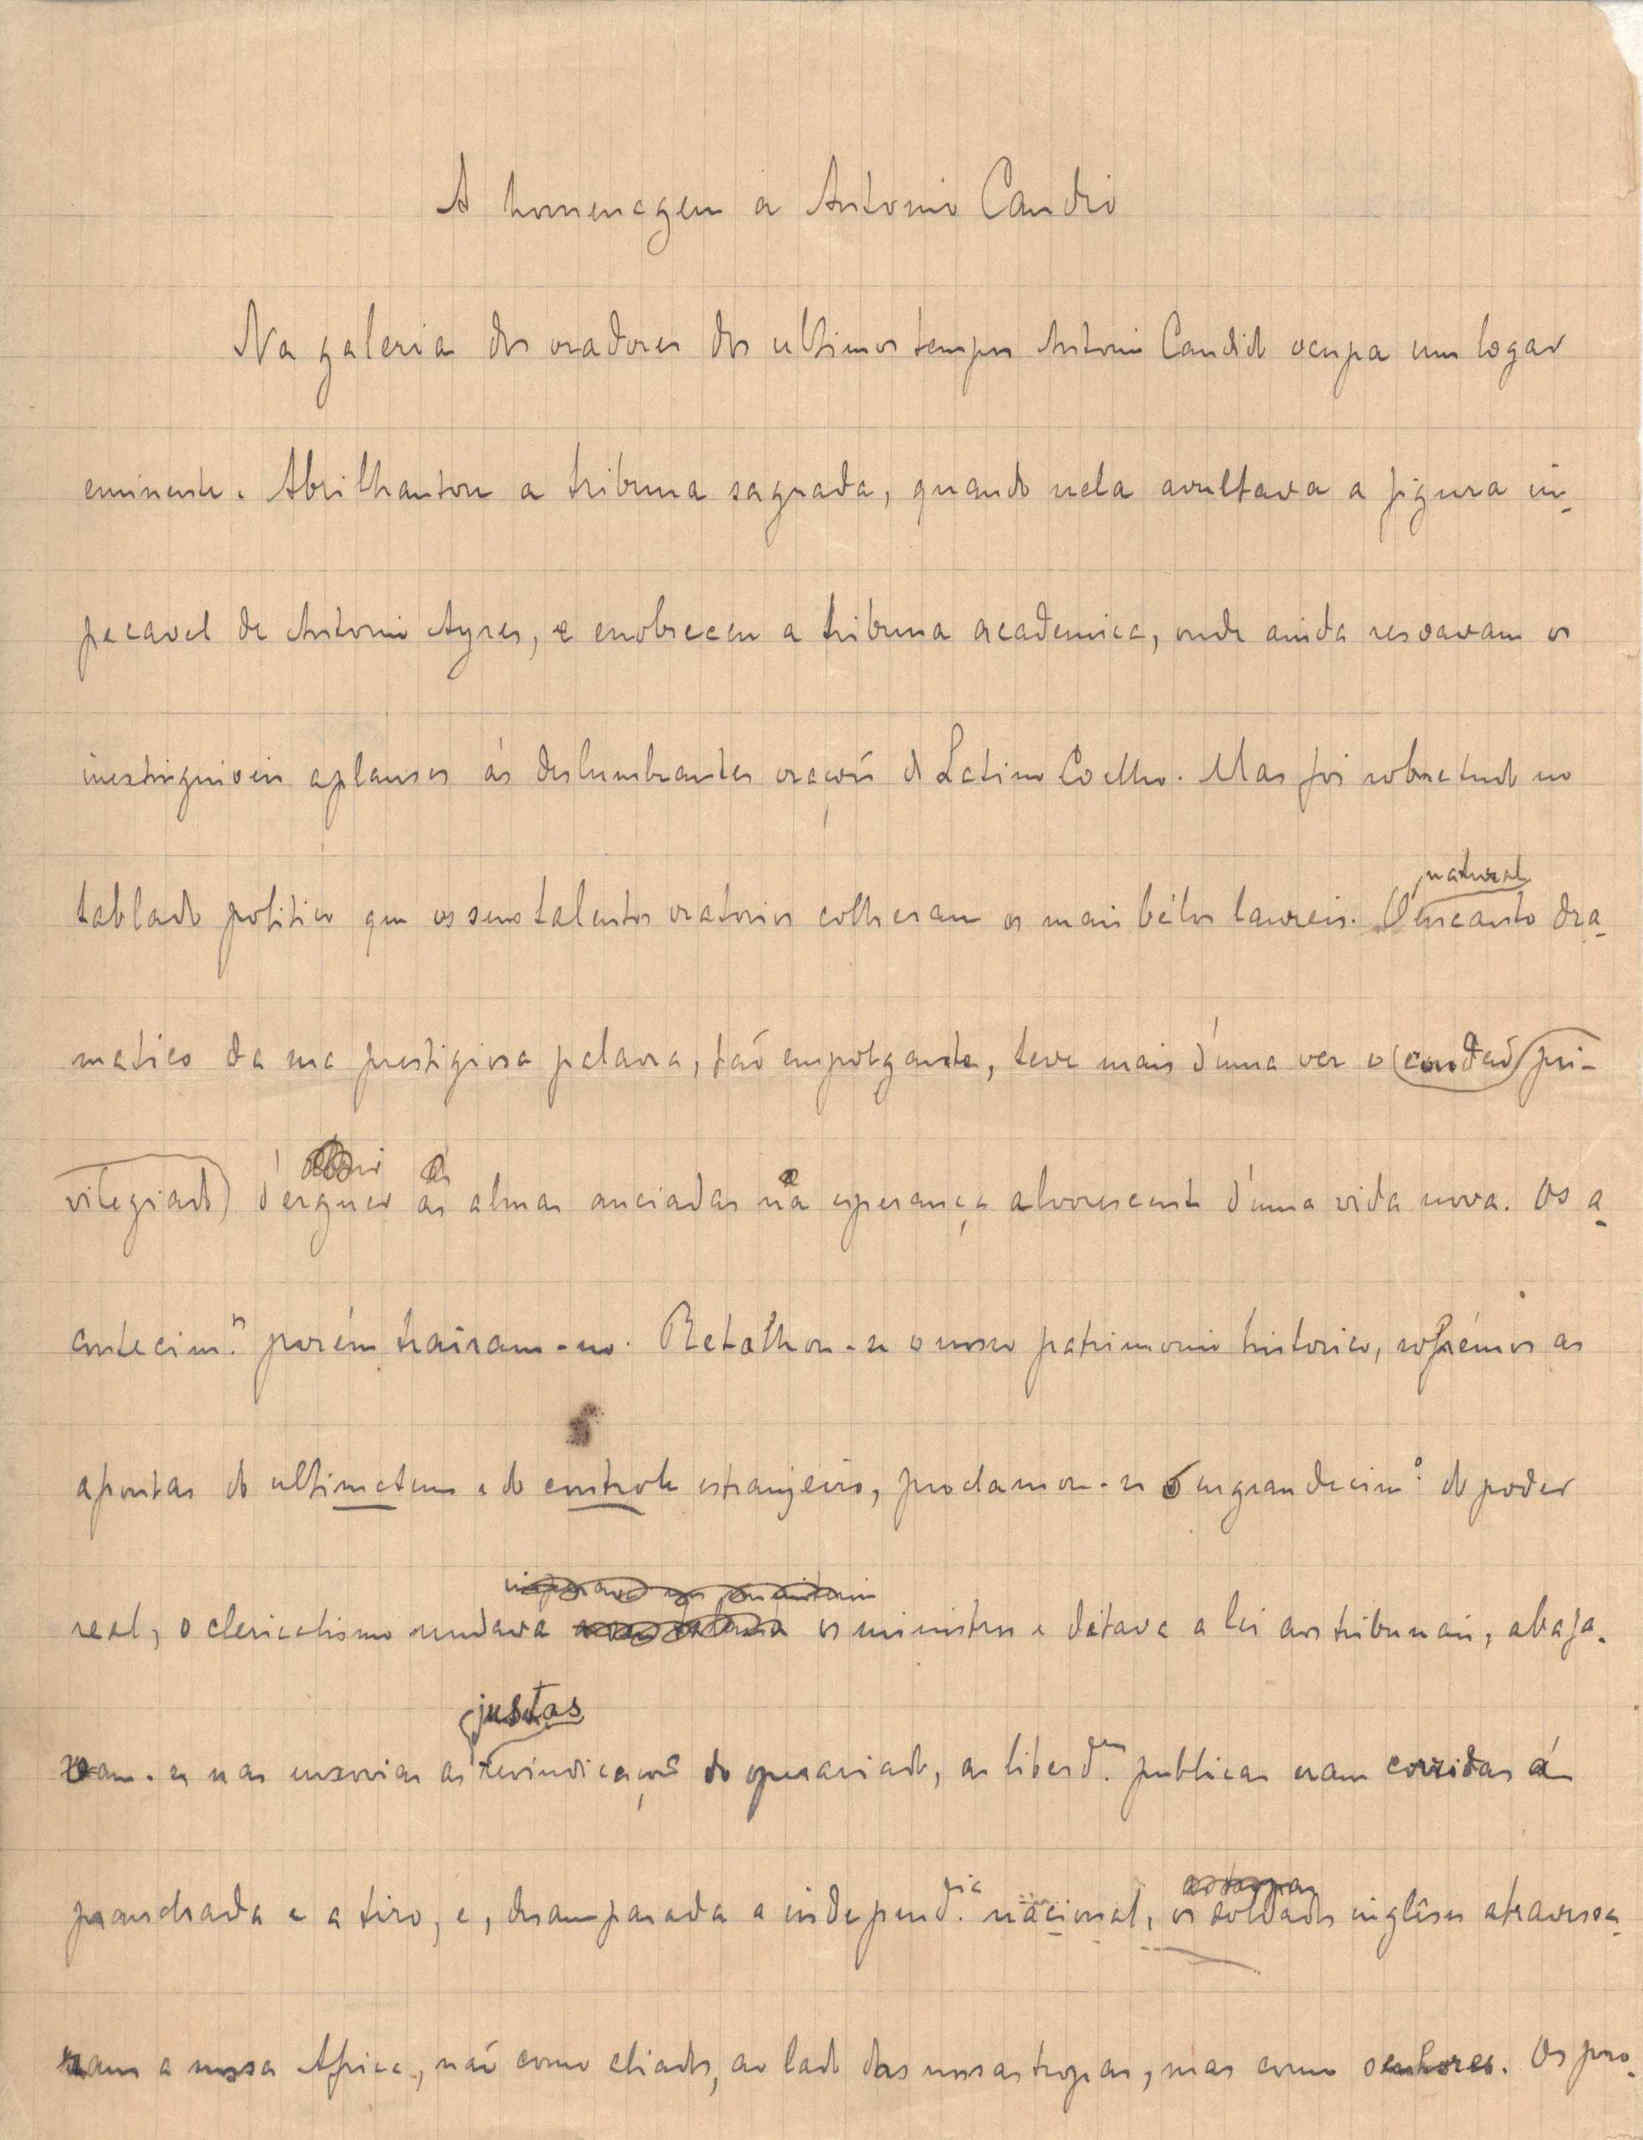 A homenagem a Antonio Candio
Na galeria dos oradores dos ultimos tempos Antonio Candido ocupa um logar
eminente. Abrilhantou a tribuna sagrada, quando nela avultava a figura im-
pecavel de Antonio Ayres, e enobreceu a tribuna academica, onde ainda resoavam os
inextinguiveis aplausos ás deslumbrantes orações de Latino Coelho. Mas foi sobretudo no
natural
tablado politico que os seus talentos oratorios colheram os mais bélos laureis. O encanto dra-
matico da sua prestigiosa palavra, tão empolgante, teve mais d'uma vez o (condão pri-
vilegiado) d'erguer as almas anciadas na esperança alvorescente d'uma vida nova. Os a-
contecim.os porém traíram-no. Retalhou-se o nosso patrimonio historico, sofrêmos as
afrontas do ultimatum e do controle estranjeiro, proclamou-se o engrandecim.o do poder
real, o clericalismo mudava os ministros e ditava a lei aos tribunais, abafa-
justas
vam-se nas enxovias as revindicações do operariado, as liberd.es publicas eram corridas á
pranchada e a tiro, e, desamparada a independ.cia nacional, os soldados inglêses atravessa-
ram a nossa Africa, não como aliados, ao lado das nossas tropas, mas como senhores. Os pro-